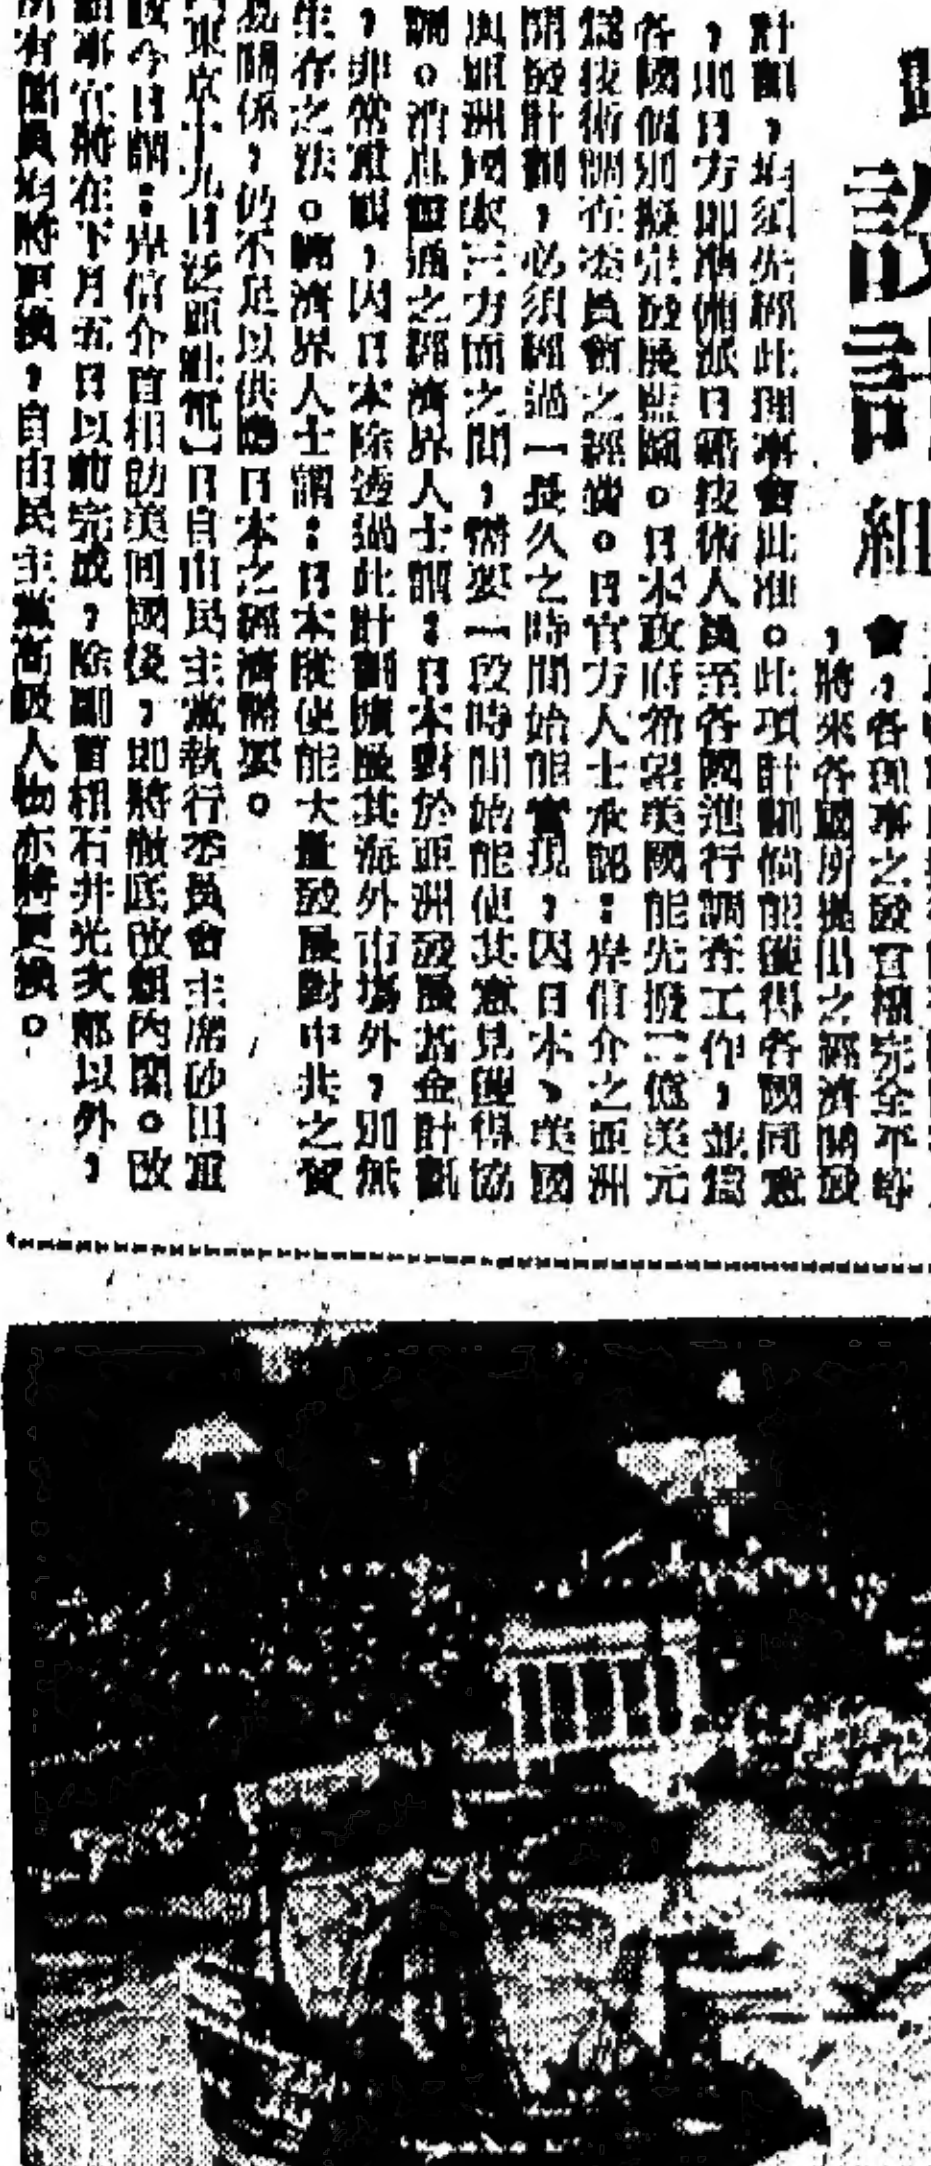 設計
組
會，各理事之設置權完全平等
，將來各國所提出之經濟開發
計劃，均須先經此理事會批准。此項計劃倘能獲得各國同意
，則日方即準備派日籍技術人員至各國進行調查工作，並為
各國個別擬定發展藍圖。日本政府希望美國能先撥二億美元
為技術調查委員會之經費。日官方人士承認：岸信介之亞洲
開發計劃，必須經過一長久之時間始能實現，因日本、美國
與亞洲國家三方面之間，需要一段時間始能使其意見獲得協
調。消息靈通之經濟界人士謂：日本對於亞洲發展基金計劃
，非常重視，因日本除透過此計劃擴展其海外市場外，別無
生存之法。經濟界人士謂：日本縱使能大量發展對中共之貿
易關係，仍不足以供應日本之經濟需要。
東京十九日泛亞社電】日自由民主黨執行委員會主席砂田重
政今日謂：岸信介首相訪美回國後，即將徹底改組內閣。改
組事宜將在下月五日以前完成，除副首相石井光次郎以外，
所有閣員均將更換，自由民主黨高級人物亦將更換。